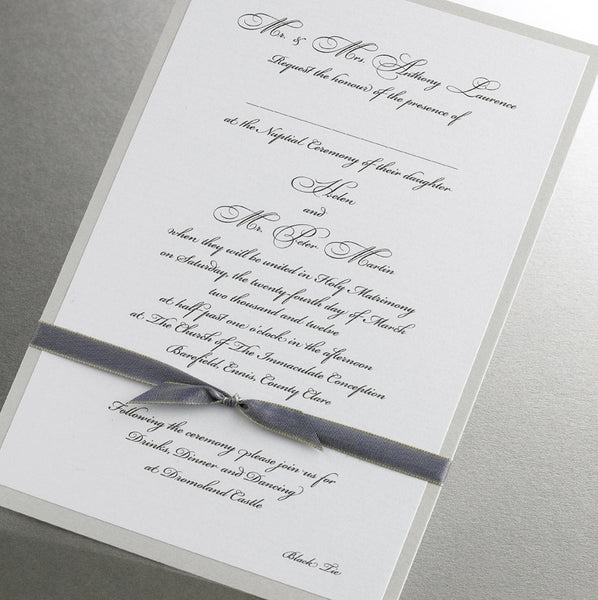 Mr. & Mrs. Anthony Laurence
Request the honour of the presence of
at the Nuptial Ceremony of their daughter
Helen
and
Mr. Peter Martin
when they will be united in Holy Matrimony
on Saturday, the twenty-fourth day of March
two thousand and twelve
at half past one o'clock in the afternoon
at The Church of The Immaculate Conception
Barefield, Ennis, County Clare
Following the ceremony please join us for
Drinks, Dinner and Dancing
at Dromoland Castle
Black Tie